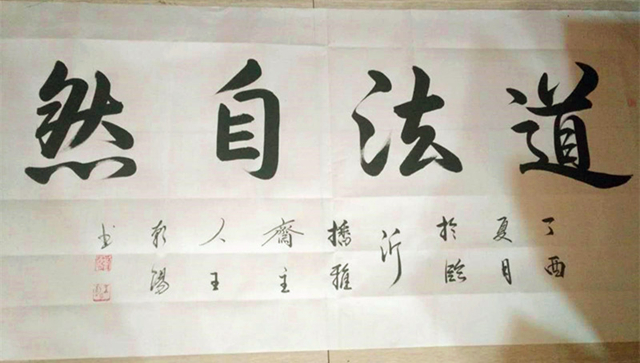 道法自然
丁酉
夏月
於臨
沂
雅
齋主
人王
陽
书